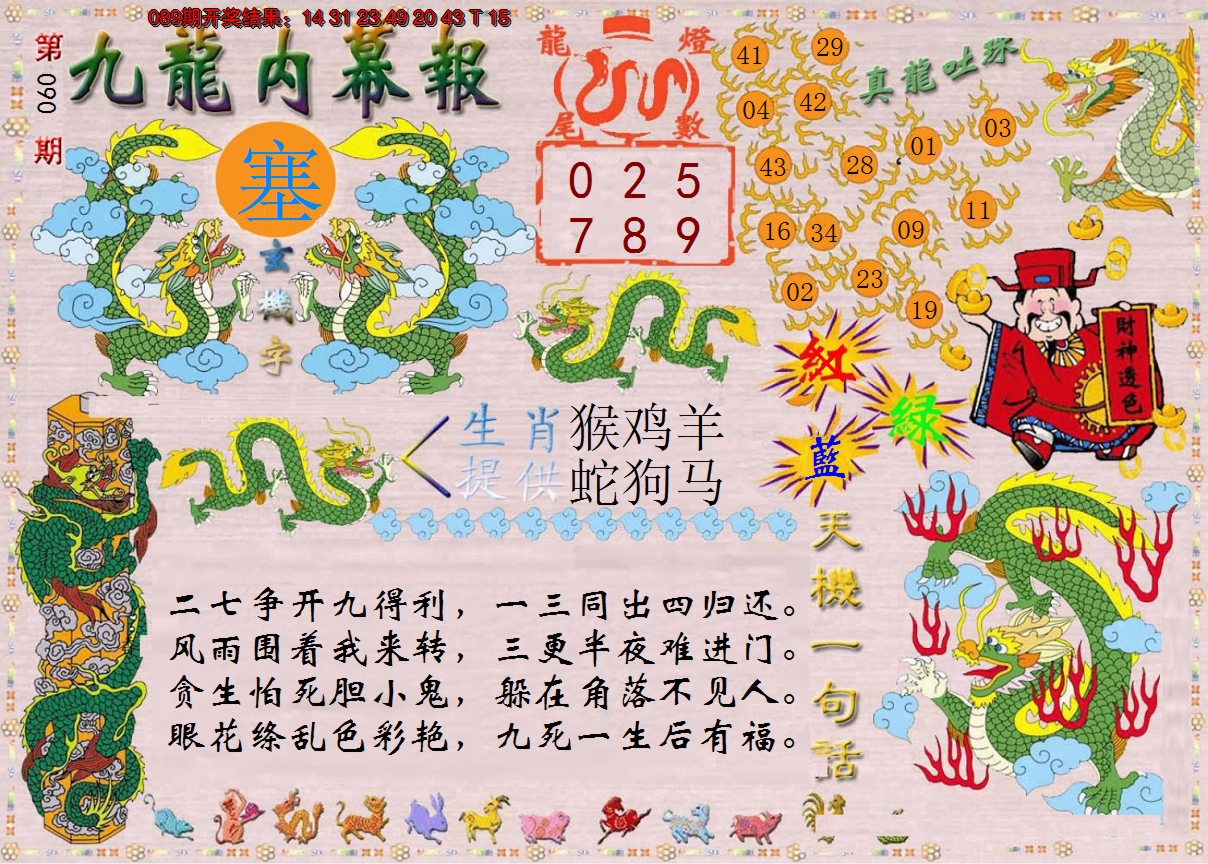 089期开奖结果：14 31 23 49 20 43 T 15
第
090
期
九龍内幕報
塞
玄
機
字
龍 燈
尾 數
0 2 5
7 8 9
真龍吐珠
41
29
04
42
43
28
01
03
16
34
09
11
02
23
19
紅
綠
藍
財神透色
生肖
提供
猴鸡羊
蛇狗马
天機一句話
二七争开九得利，一三同出四归还。
风雨围着我来转，三更半夜难进门。
贪生怕死胆小鬼，躲在角落不见人。
眼花绦乱色彩艳，九死一生后有福。